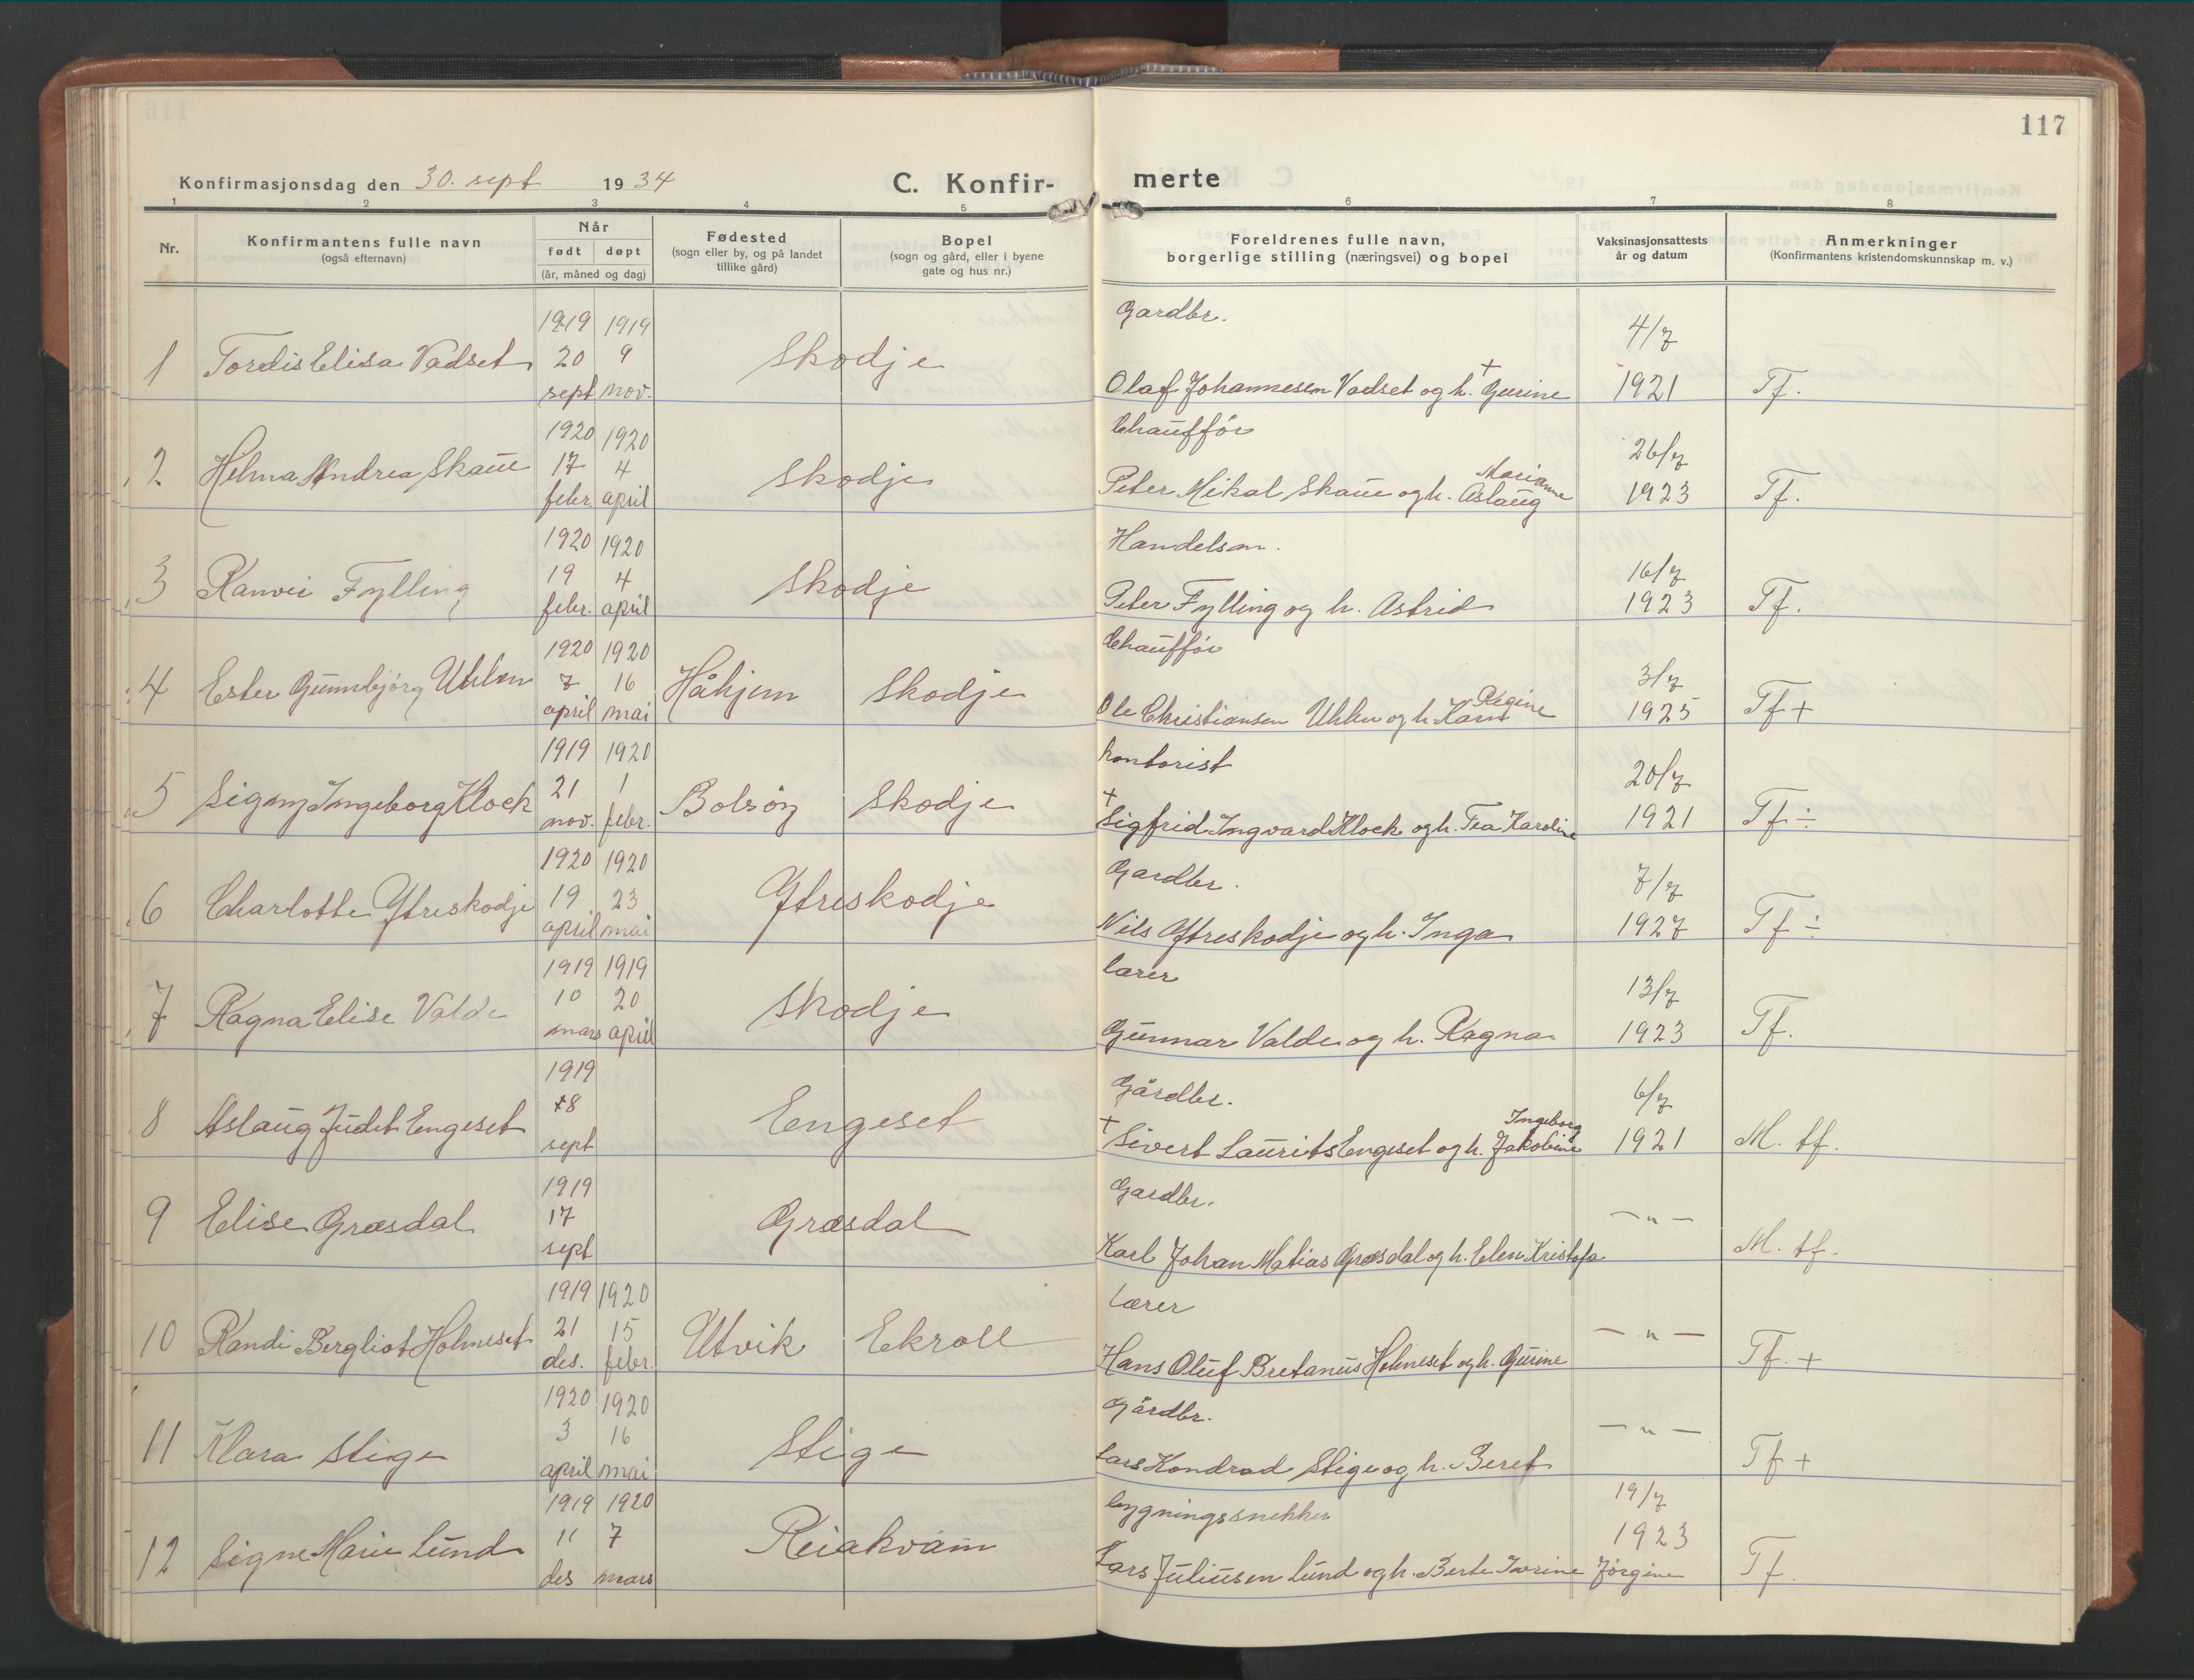 117
Konfirmasjonsdag den 30. sept 1934
C. Konfir-
merte
1 2 3 4 5 6 7 8
Nr.
Konfirmantens fulle navn
(også efternavn)
Når
født døpt
(år, måned og dag)
Fødested
(sogn eller by, og på landet
tillike gård)
Bopel
(sogn og gård, eller i byene
gate og hus nr.)
Foreldrenes fulle navn,
borgerlige stilling (næringsvei) og bopel
Vaksinasjonsattests
år og datum
Anmerkninger
(Konfirmantens kristendomskunnskap m. v.)
1919 1919 Gardbr. 4/7
1 Tordis Elisa Vadset 20 9 Skodje
sept nov. Olaf Johannesen Vadset og h. + Gurine 1921 Tf.
1920 1920 Chauffør 26/7
2 Helma Andrea Skaue 17 4 Skodje Marianne
febr. april Peter Mikal Skaue og h. Aslaug 1923 Tf.
1920 1920 Handelsm. 16/7
3 Ranvei Fylling 19 4 Skodje
febr. april Peter Fylling og h. Astrid 1923 Tf.
1920 1920 Chauffør 3/7
4 Ester Gunnbjørg Uhlen 7 16 Håhjem Skodje Regine
april mai Ole Christiansen Uhlen og h. Karn 1925 Tf +
1919 1920 kontorist 20/7
5 Signy Ingeborg Klock 21 1 Bolsøy Skodje
nov. febr. + Sigfrid Ingvard Klock og h. Tea Karoline 1921 Tf ÷
1920 1920 Gardbr. 7/7
6 Charlotte Ytreskodje 19 23 Ytreskodje
april mai Nils Ytreskodje og h. Inga 1927 Tf ÷
1919 1919 lærer 13/7
7 Ragna Elise Valde 10 20 Skodje
mars april Gunnar Valde og h. Ragna 1923 Tf.
1919 Gårdbr. 6/7
8 Aslaug Judit Engeset 8 Engeset Ingeborg
sept + Sivert Laurits Engeset og h. Jakobine 1921 M. tf.
1919 Gardbr.
9 Elise Græsdal 17 Græsdal — " —
sept Karl Johan Matias Græsdal og h. Elen Kristofa M. tf.
1919 1920 Lærer
10 Randi Bergliot Holmeset 21 15 Utvik Ekroll — " —
des. febr. Hans Oluf Bretanus Holmeset og h. Gurine Tf. +
1920 1920 Gårdbr.
11 Klara Stige 3 16 Stige — " —
april mai Lars Kondrad Stige og h. Beret Tf +
1919 1920 bygningssnekker 19/7
12 Signe Marie Lund 11 7 Reiakvam 1923
des mars Lars Juliusen Lund og h. Berte Iverine Jørgine Tf